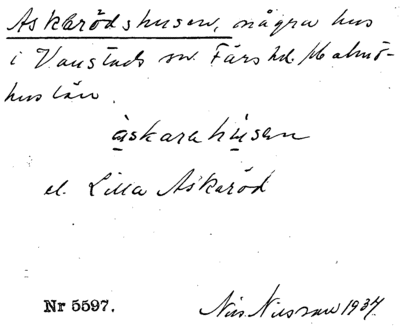 Askerödshusen, några hus
i Vanstads sn. Färs hd. Malmö-
hus län.
åskarahusen
el. Lilla Askeröd
Nr 5597.
Nils Nilsson 1937.